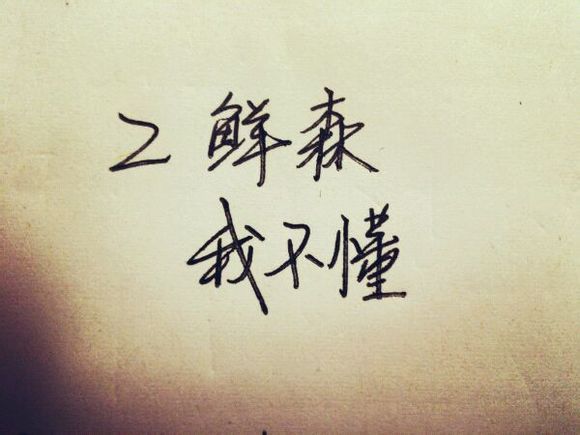 2 鲜森
我不懂